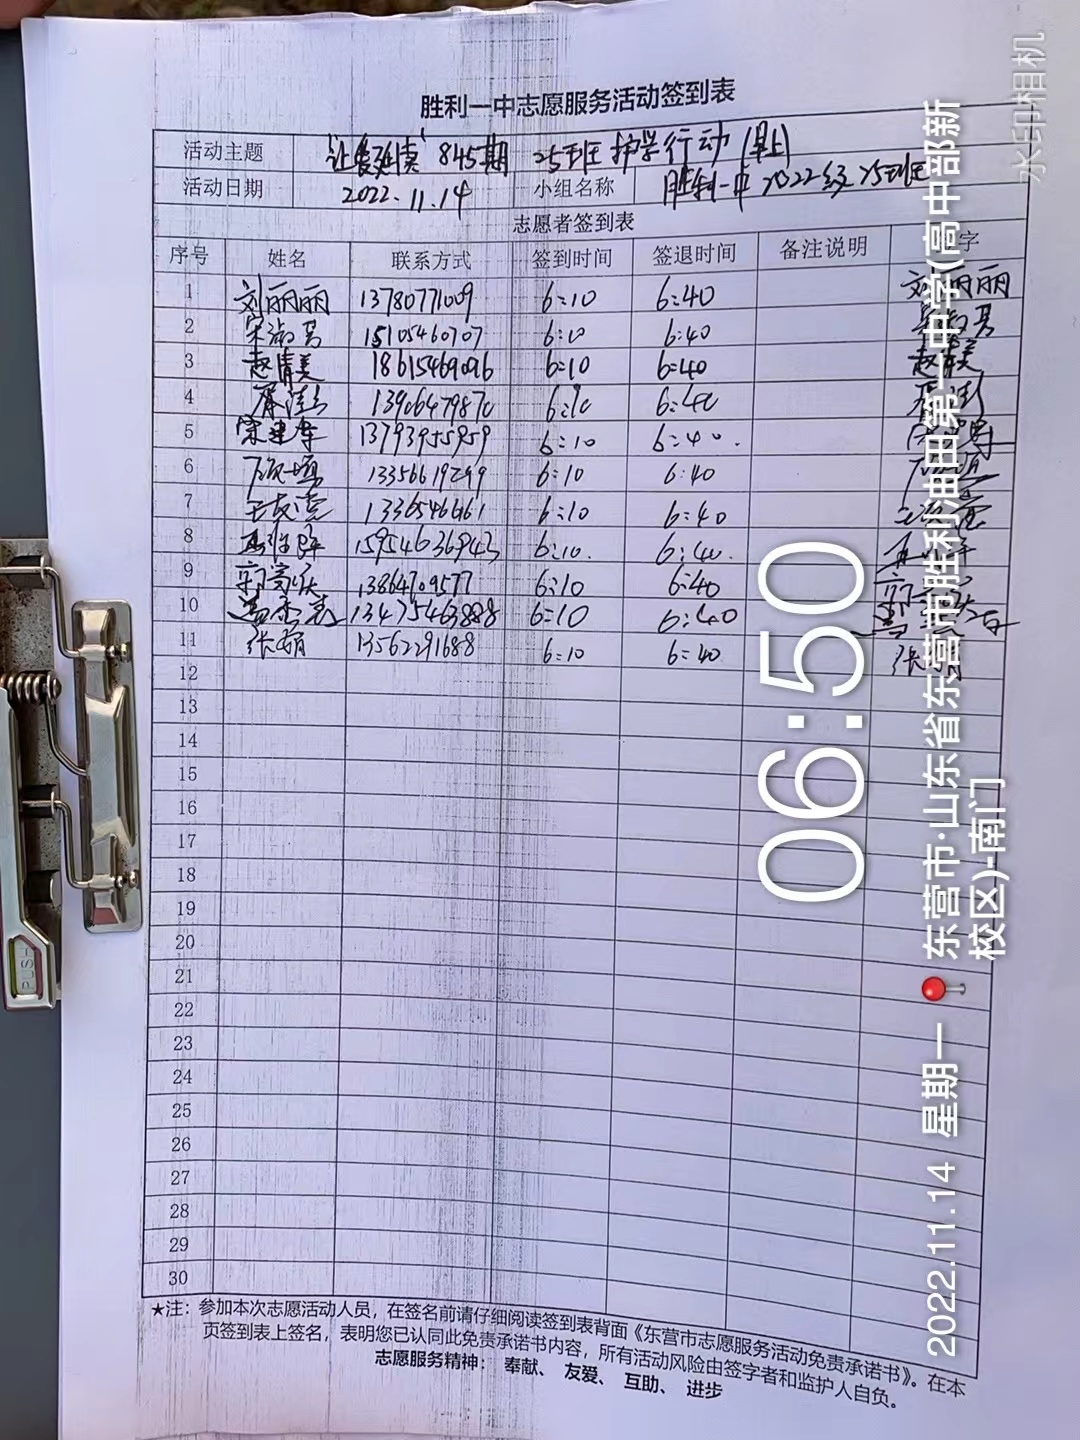 胜利一中志愿服务活动签到表
活动主题 让爱延续 845期 25班 护学行动 (早上)
活动日期 2022.11.14 小组名称 胜利一中2022级25班
志愿者签到表
序号 姓名 联系方式 签到时间 签退时间 备注说明 字
1 刘丽丽 13780771009 6:10 6:40 刘丽丽
2 宋淑芳 15105460707 6:10 6:40
3 赵清美 18615469096 6:10 6:40 赵清美
4 6:10 6:40
5 宋建军 13793955959 6:10 6:40.
6 13356619299 6:10 6:40
7 1336546461 6:10 6:40
8 15954636943 6:10. 6:40.
9 13864709577 6:10 6:40
10 13475463888 6:10 6:40
11 张娟 13562291688 6:10 6:40 张娟
12
13
14
15
16
17
18
19
20
21
22
23
24
25
26
27
28
29
30
★注：参加本次志愿活动人员，在签名前请仔细阅读签到表背面《东营市志愿服务活动免责承诺书》。在本
页签到表上签名，表明您已认同此免责承诺书内容，所有活动风险由签字者和监护人自负。
志愿服务精神： 奉献、 友爱、 互助、 进步
PUSH
06:50
2022.11.14 星期一
东营市·山东省东营市胜利油田第一中学(高中部新
校区)-南门
水印相机